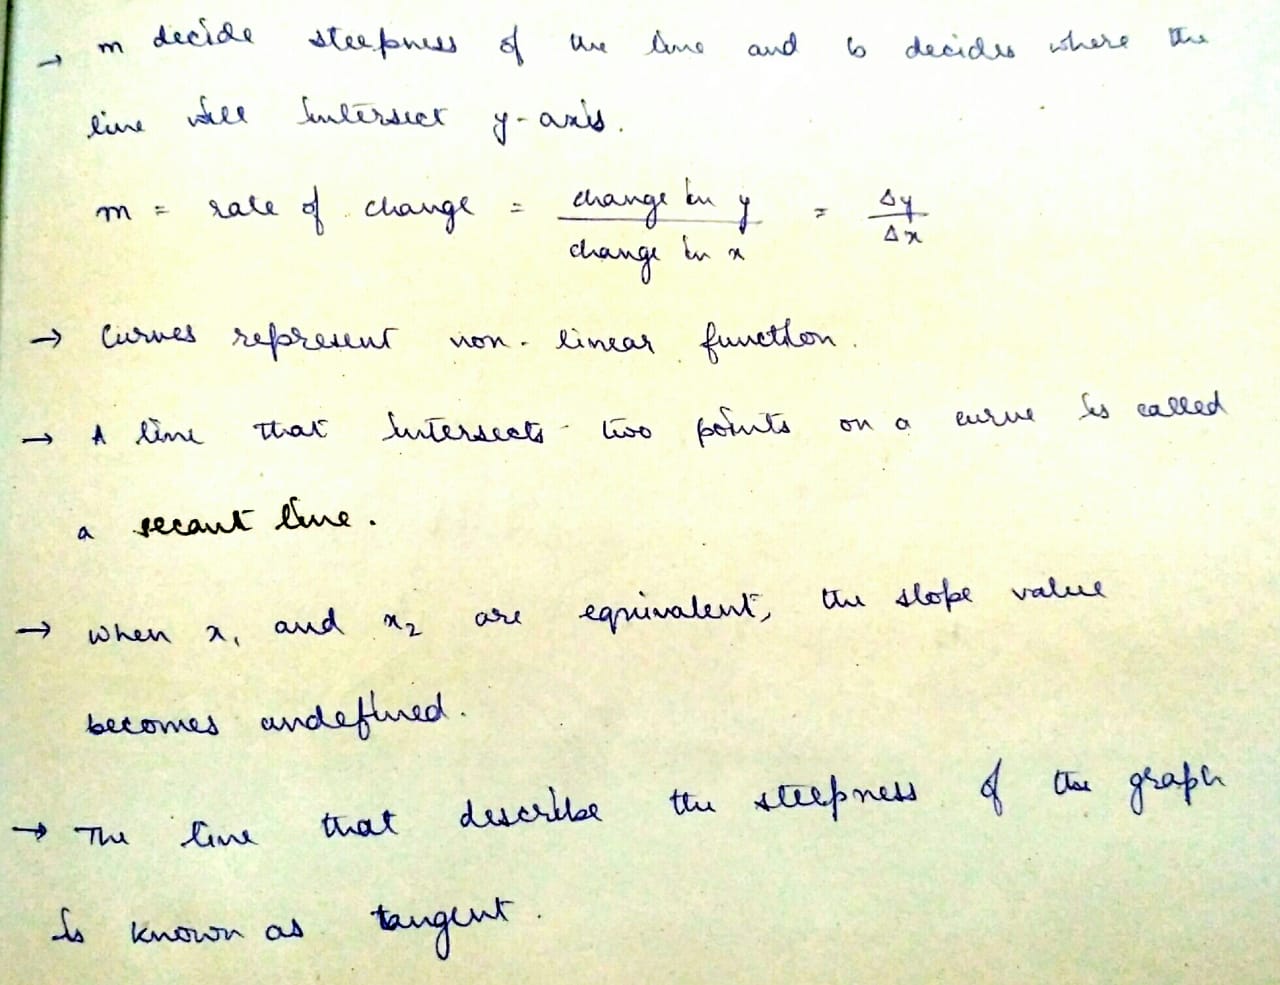 → m decide steepness of the line and b decides where the
line will intersect y-axis.
m = rate of change = change in y / change in x = Δy / Δx
→ Curves represent non-linear function.
→ A line that intersects two points on a curve is called
a secant line.
→ When x₁ and x₂ are equivalent, the slope value
becomes undefined.
→ The line that describe the steepness of the graph
is known as tangent.